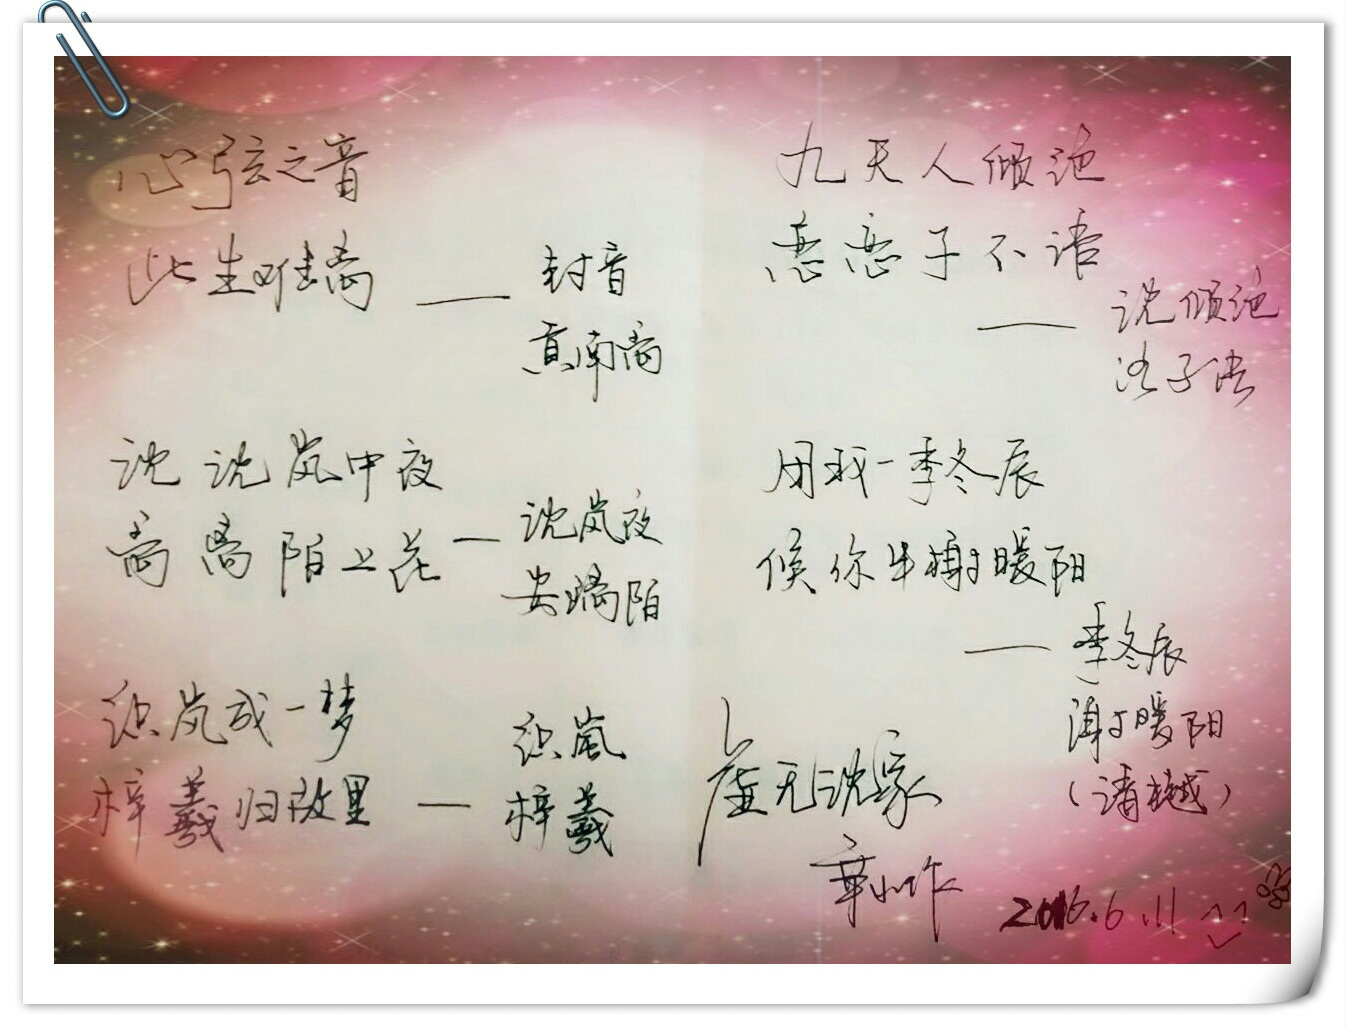 心弦之音
此生难离 —— 封音
贡南离
沈沈岚中夜
离离陌上花 — 沈岚夜
安璃陌
织岚成一梦
梓羲归故里 — 织岚
梓羲
九天人倾沲
恋恋子不语
—— 沈倾沲
洛子语
用我一季冬辰
候你半榭暖阳
—— 季冬辰
谢暖阳
(潘越)
虚无沈家
章小作
2016.6.11